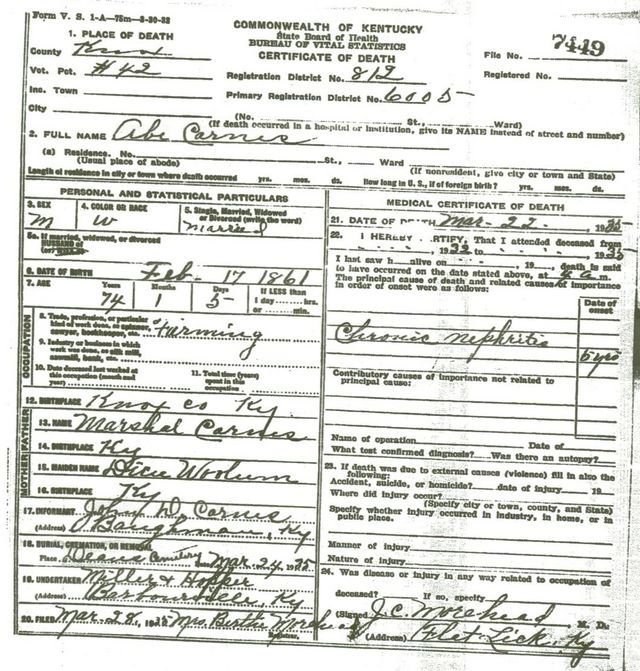 Form V. S. 1-A—75m—8-30-32
COMMONWEALTH OF KENTUCKY
State Board of Health
BUREAU OF VITAL STATISTICS
CERTIFICATE OF DEATH
File No. 7449
Registered No.
1. PLACE OF DEATH
County Knox
Vot. Pct. #42
Registration District No. 812
Inc. Town
Primary Registration District No. 6005
City
(No. St., Ward)
(If death occurred in a hospital or institution, give its NAME instead of street and number)
2. FULL NAME Abe Carnes
(a) Residence. No. St., Ward
(Usual place of abode) (If nonresident, give city or town and State)
Length of residence in city or town where death occurred yrs. mos. ds. How long in U. S., if of foreign birth? yrs. mos. ds.
PERSONAL AND STATISTICAL PARTICULARS
3. SEX M
4. COLOR OR RACE W
5. Single, Married, Widowed or Divorced (write the word) Married
5a. If married, widowed, or divorced
HUSBAND of
6. DATE OF BIRTH Feb - 17 1861
7. AGE Years 74 Months 1 Days 5 If LESS than 1 day hrs. or min.
OCCUPATION
8. Trade, profession, or particular kind of work done, as spinner, sawyer, bookkeeper, etc. Farming
9. Industry or business in which work was done, as silk mill, sawmill, bank, etc.
10. Date deceased last worked at this occupation (month and year)
11. Total time (years) spent in this occupation
12. BIRTHPLACE Knox co Ky
FATHER
13. NAME Marshal Carnes
14. BIRTHPLACE Ky
MOTHER
15. MAIDEN NAME Dicie Woolum
16. BIRTHPLACE Ky
17. INFORMANT Johny D. Carnes
(Address) Baughman, Ky
18. BURIAL, CREMATION, OR REMOVAL
Place Deans Cemetery Date Mar 24, 1935
19. UNDERTAKER Miller & Hopper
(Address) Barbourville, Ky
20. FILED Mar. 28, 1935 Mrs. Birtie Morehead
Registrar.
MEDICAL CERTIFICATE OF DEATH
21. DATE OF DEATH Mar - 22 - 1935
22. I HEREBY CERTIFY, That I attended deceased from
, 1932 to , 1935
I last saw h alive on , 19 , death is said
to have occurred on the date stated above, at m.
The principal cause of death and related causes of importance
in order of onset were as follows:
Date of onset
Chronic nephritis 5 yrs
Contributory causes of importance not related to
principal cause:
Name of operation Date of
What test confirmed diagnosis? Was there an autopsy?
23. If death was due to external causes (violence) fill in also the
following:
Accident, suicide, or homicide? date of injury 19
Where did injury occur?
(Specify city or town, county, and State)
Specify whether injury occurred in industry, in home, or in
public place.
Manner of injury
Nature of injury
24. Was disease or injury in any way related to occupation of
deceased? If so, specify
(Signed) J. C. Morehead M. D.
(Address) Flat Lick, Ky